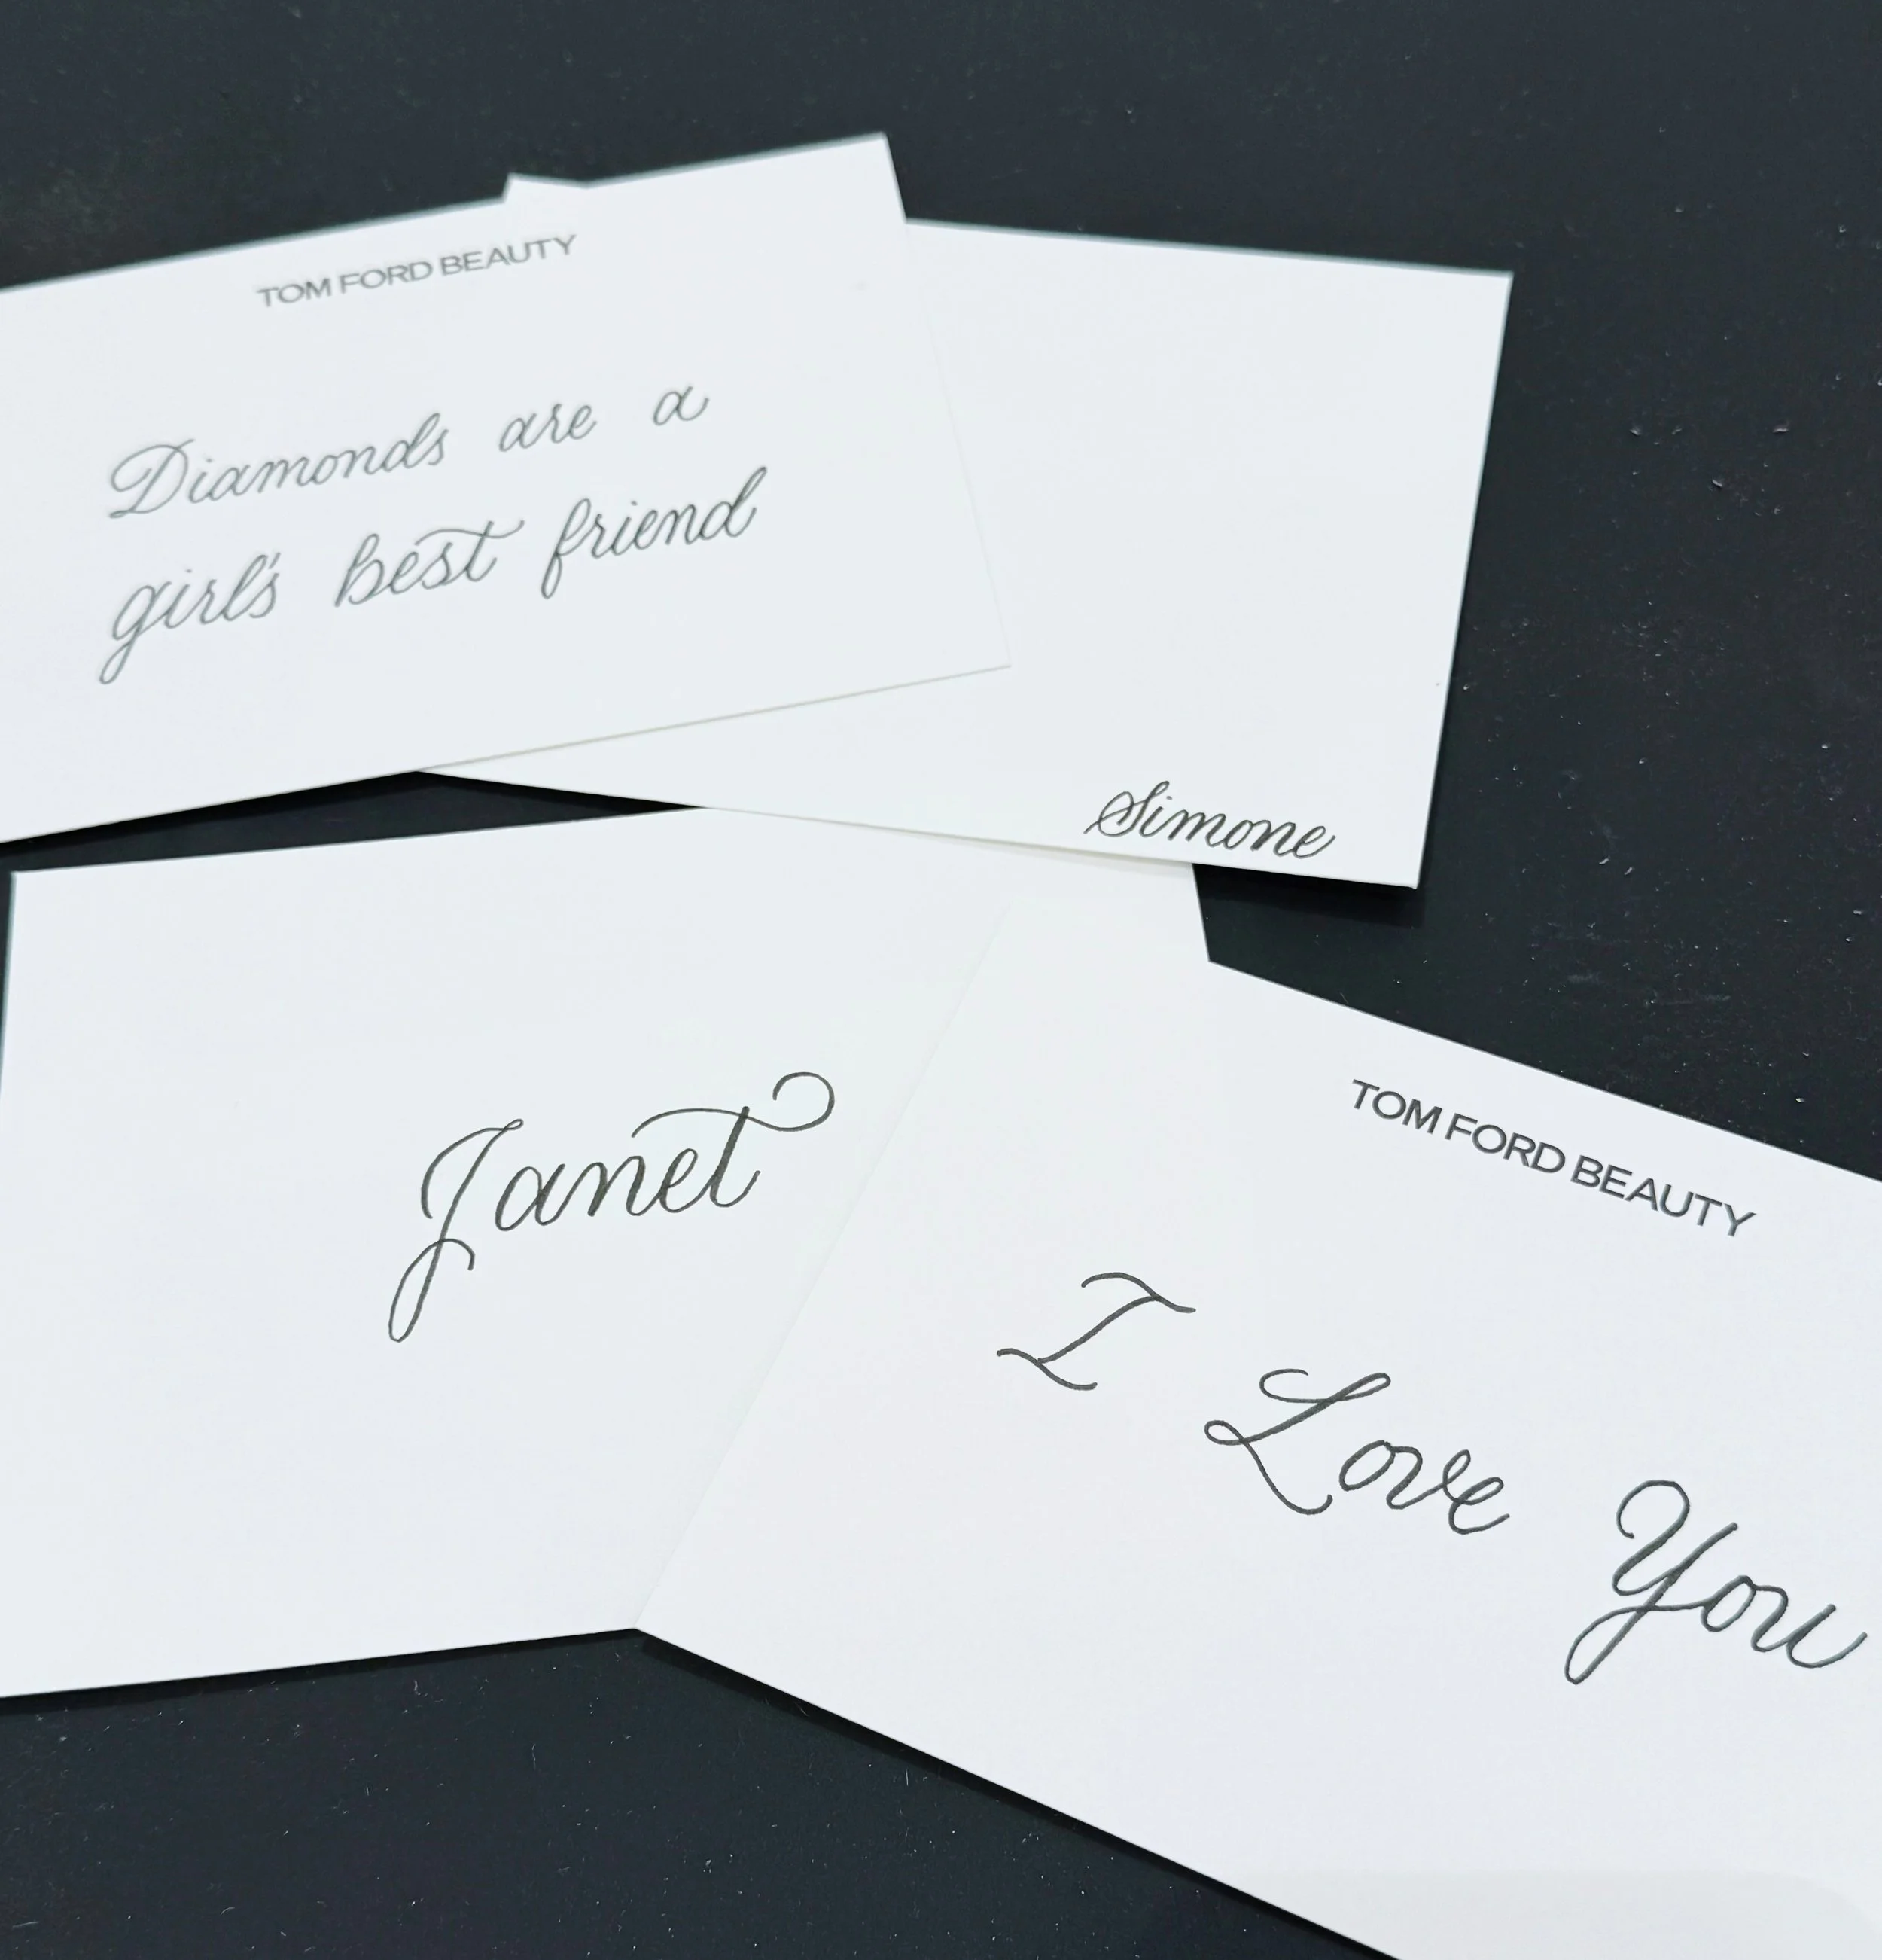 TOM FORD BEAUTY
Diamonds are a
girl's best friend
Simone
Janet
TOM FORD BEAUTY
I Love You